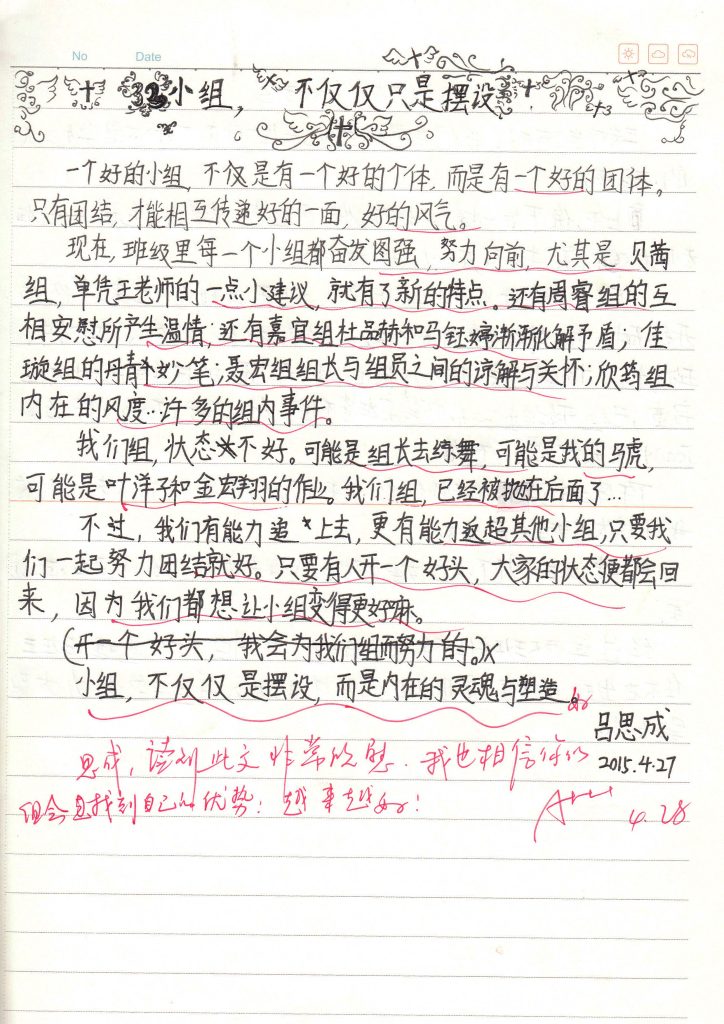 No Date
小组，不仅仅只是摆设
一个好的小组，不仅是有一个好的个体，而是有一个好的团体。
只有团结，才能相互传递好的一面，好的风气。
现在，班级里每一个小组都奋发图强，努力向前，尤其是贝茜
组，单凭王老师的一点小建议，就有了新的特点。还有周睿组的互
相安慰所产生温情；还有嘉宜组杜品赫和马钰婷渐渐化解矛盾；佳
璇组的丹青妙笔；聂宏组组长与组员之间的谅解与关怀；欣筠组
内在的风度…许多的组内事件。
我们组，状态不好。可能是组长去练舞，可能是我的马虎，
可能是叶洋子和金宏翔的作业。我们组，已经被抛在后面了…
不过，我们有能力追上去，更有能力返超其他小组，只要我
们一起努力团结就好。只要有人开一个好头，大家的状态便都会回
来，因为我们都想让小组变得更好嘛。
（开一个好头，我会为我们组而努力的。）
小组，不仅仅是摆设，而是内在的灵魂与塑造。
好
吕思成
2015.4.27
思成，读到此文非常欣慰。我也相信你们
组会找到自己的优势！越来越好！
4.28